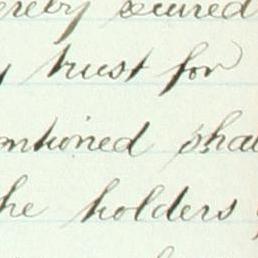 ereby secured
y trust for
entioned shal
the holders